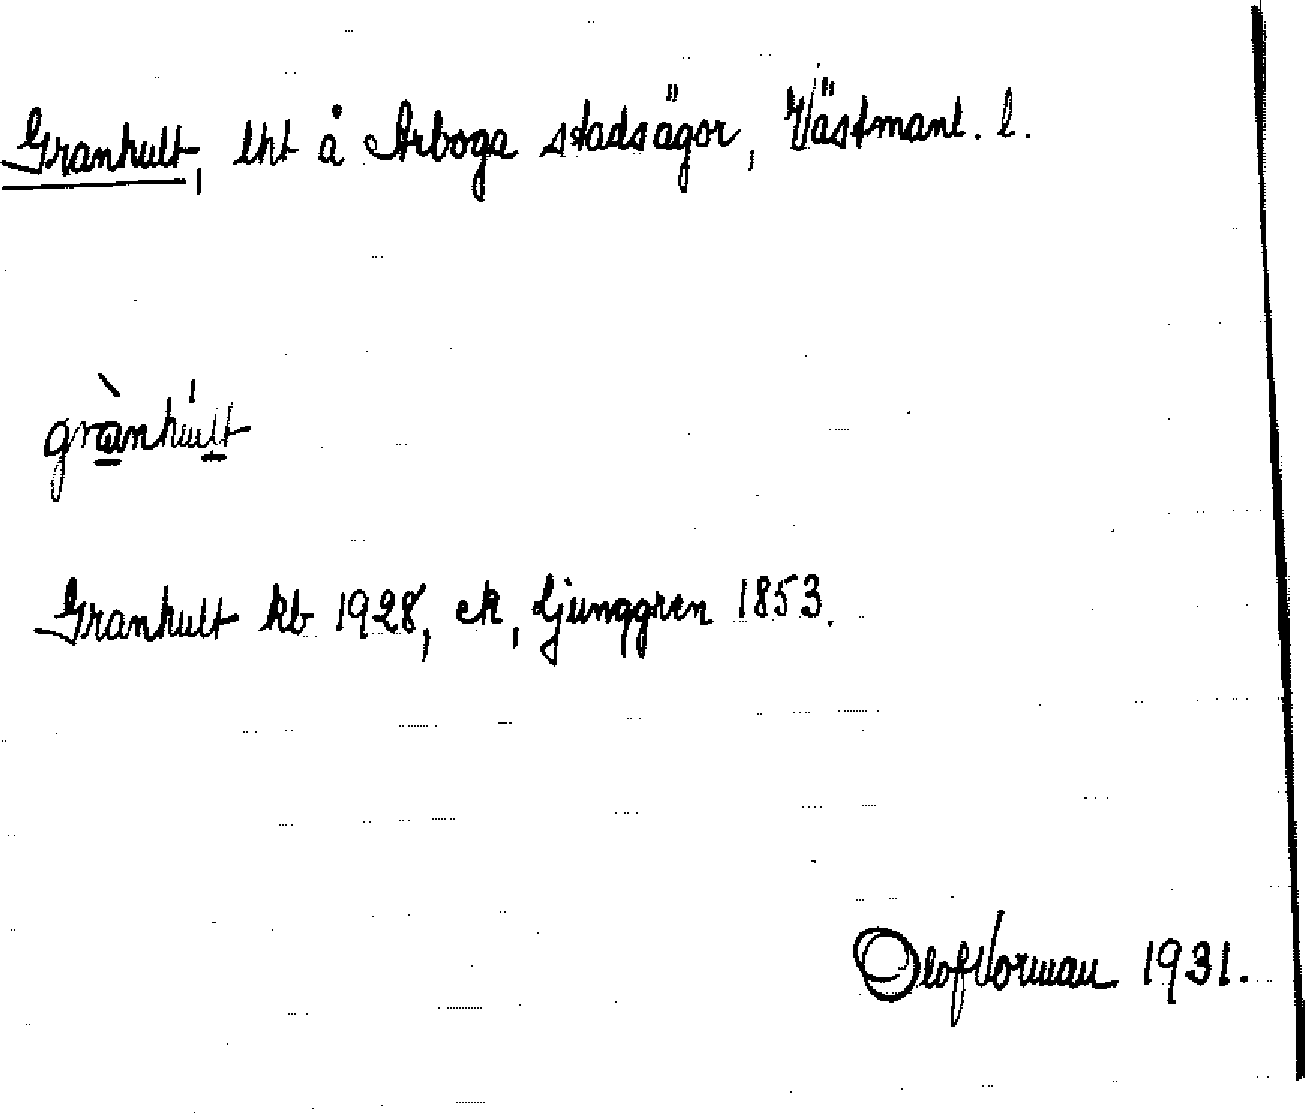 Granhult, lht å Arboga stadsägor, Västmanl. l.
grànhúlt
Granhult kb 1928, ek, Ljunggren 1853.
Olof Norman 1931.